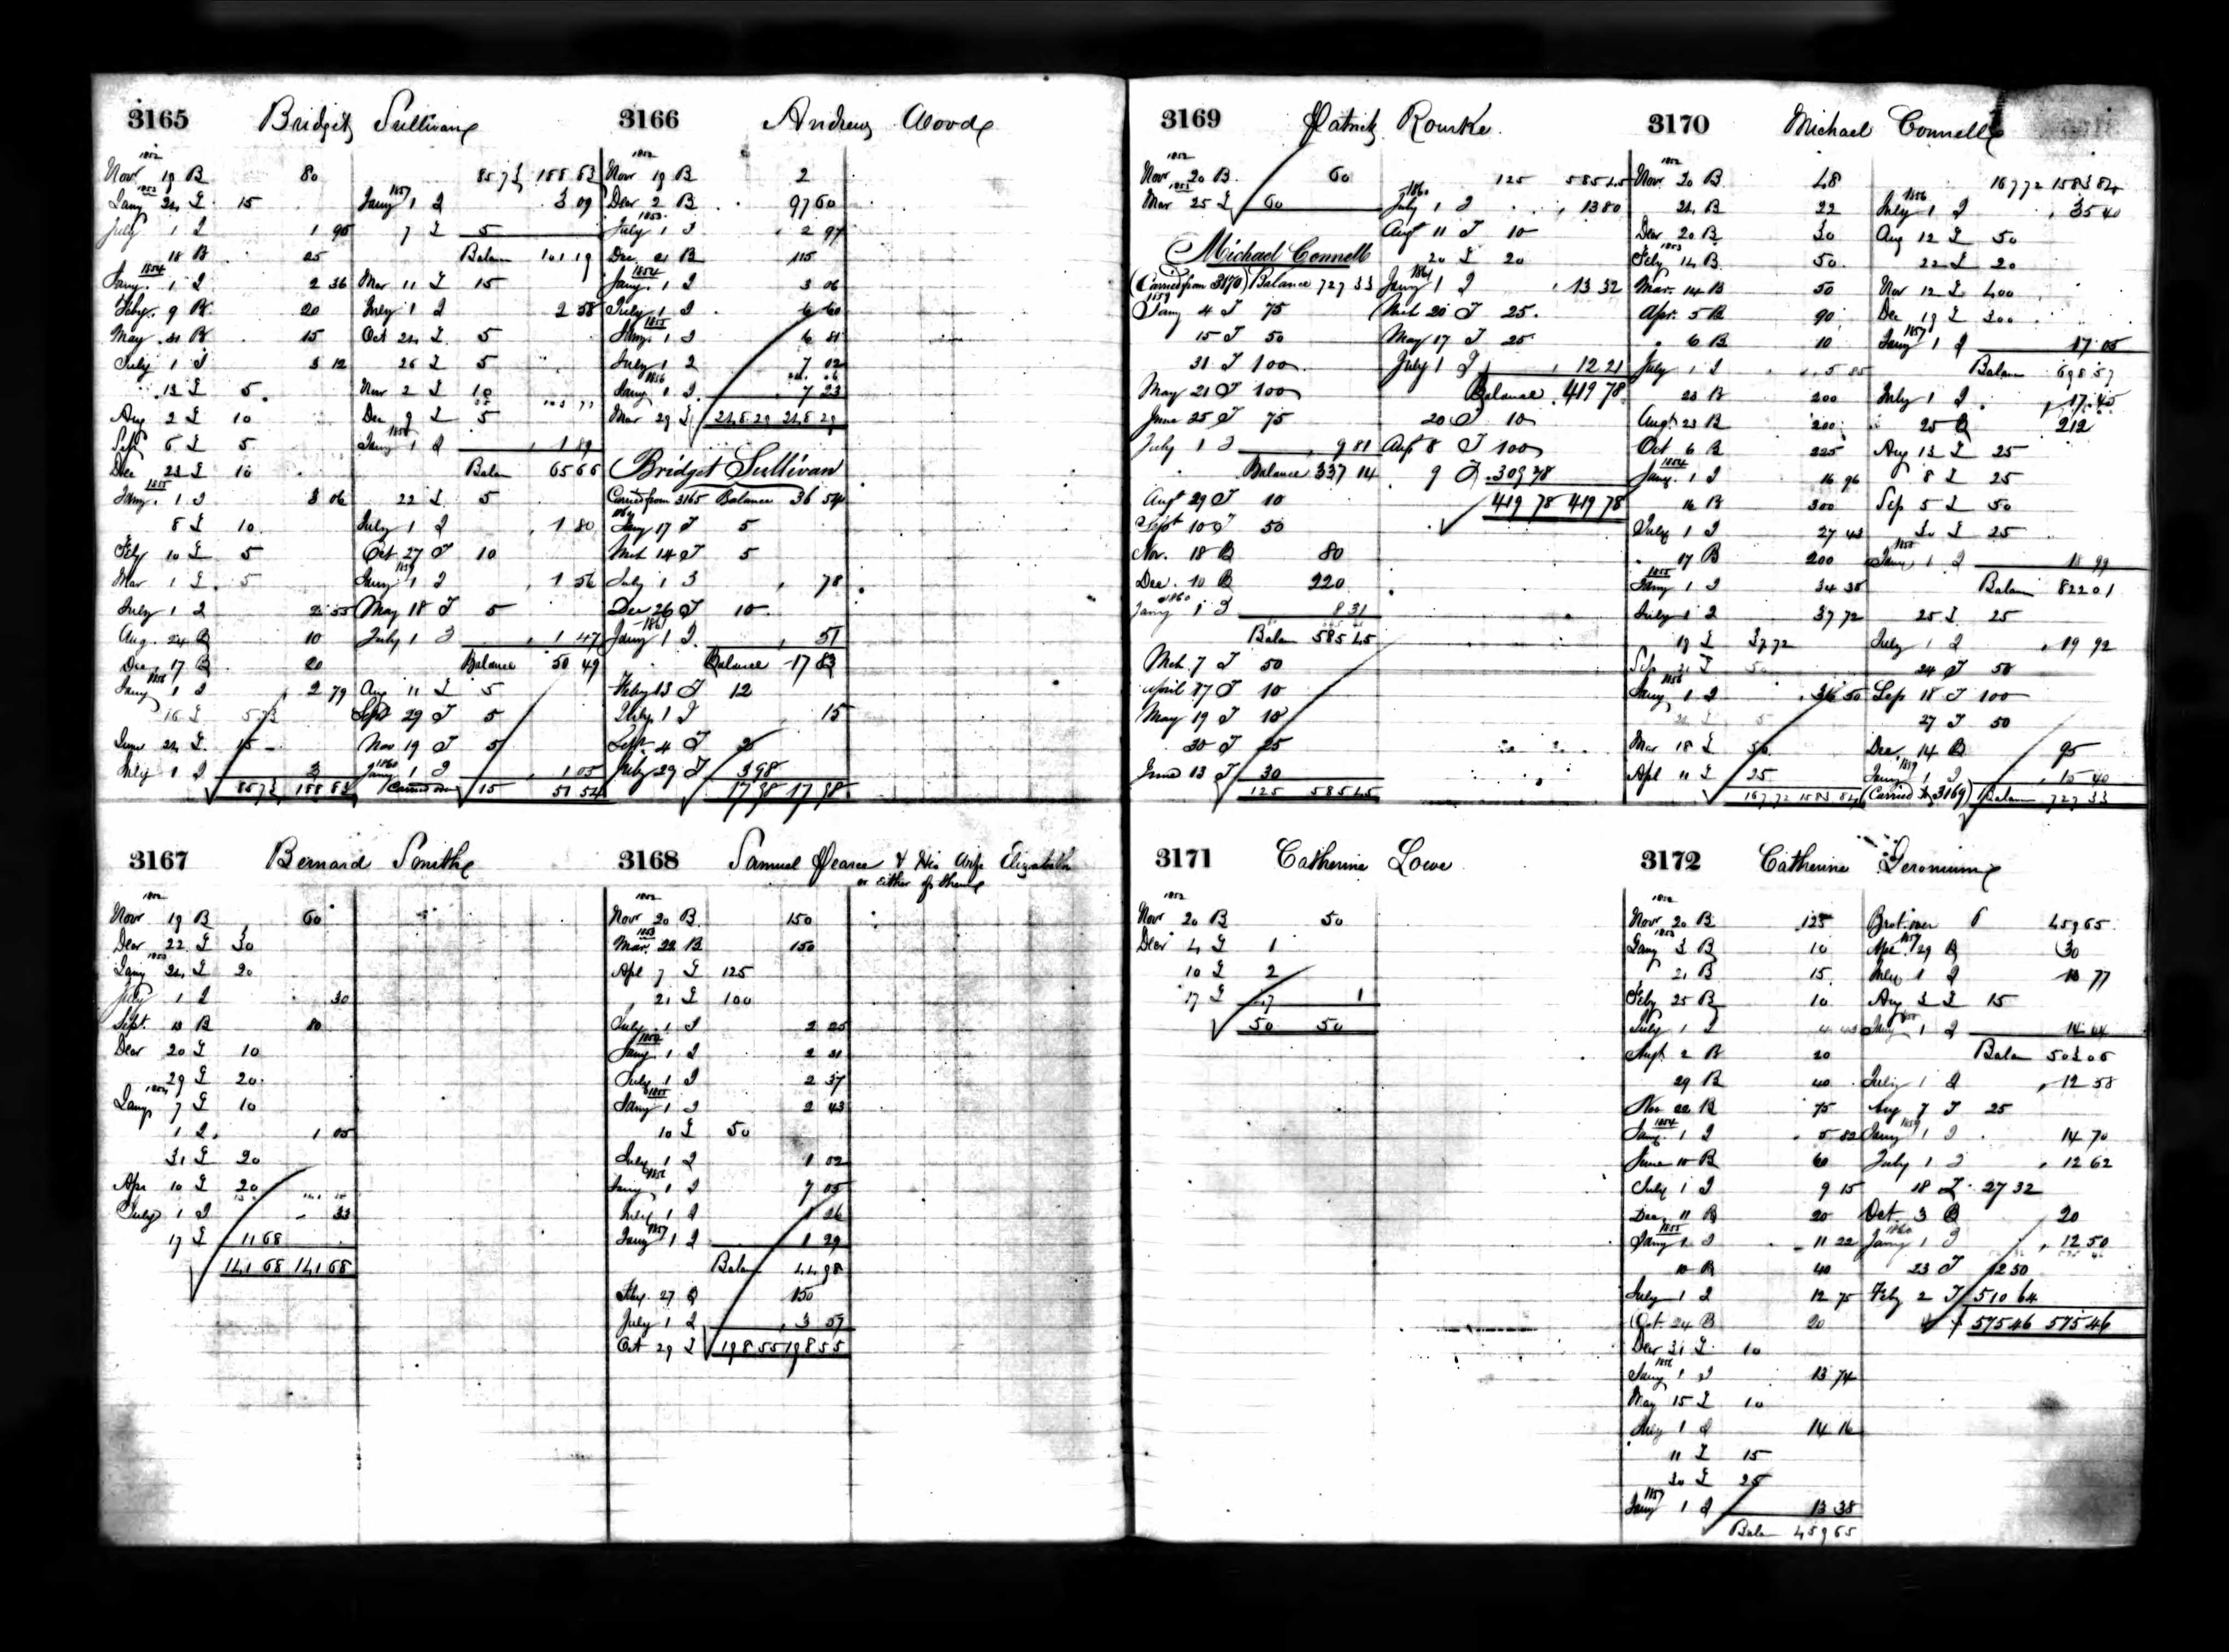 3165 Bridget Sullivan
1852
Nov 19 B 80
1853
Jany 24 T 15
July 1 I 1 95
18 B 25
1854
Jany 1 I 2 36
Feby 9 B 20
May 31 B 15
July 1 I 3 12
13 T 5
Aug 2 T 10
Sep 6 T 5
Dec 23 T 10
1855
Jany 1 I 3 06
8 T 10
Fely 10 T 5
Mar 1 T 5
July 1 I 2 55
Aug. 24 B 10
Dec 17 B 20
1856
Jany 1 I 2 79
16 T
June 24 T 15
July 1 I 3
857 3 188 83
857 3 188 83
1857
Jany 1 I 3 09
7 T 5
Balan 101 19
Mar 11 T 15
July 1 I 2 58
Oct 24 T 5
26 T 5
Nov 2 T 10
Dec 9 T 5
1858
Jany 1 I 1 89
Balan 65 66
22 T 5
July 1 I 1 80
Oct 27 T 10
1859
Jany 1 I 1 56
May 18 T 5
July 1 I 1 47
Balance 50 49
Aug 11 T 5
Sept 29 T 5
Nov 19 T 5
1860
Jany 1 I 1 05
Carried over 15 51 54
3166 Andrew Wood
1852
Nov 19 B 2
Decr 2 B 97 60
1853
July 1 I 2 97
Dec 21 B 115
1854
Jany 1 I 3 06
July 1 I 6 60
1855
Jany 1 I 6 81
July 1 I 7 02
1856
Jany 1 I 7 23
Mar 29 T 248 29 248 29
Bridget Sullivan
Carried from 3165 Balance 36 54
Jany 17 T 5
Mch 14 T 5
July 1 I 78
Dec 26 T 10
1861
Jany 1 I 51
Balance 17 83
Feby 13 T 12
July 1 I 15
Sept 4 T 2
July 29 T 3 98
17 98 17 98
3167 Bernard Smith
1852
Nov 19 B 60
Decr 22 T 30
1853
Jany 24 T 20
July 1 I 30
Sept. 13 B 80
Decr 20 T 10
29 T 20
1854
Jany 7 T 10
1 I 1 05
31 T 20
Apr 10 T 20
July 1 I 33
17 T 11 68
141 68 141 68
3168 Samuel Pearce & His Wife Elizabeth
or either of them
1852
Nov 20 B 150
1853
Mar. 22 B 150
Apl 7 T 125
21 T 100
July 1 I 2 25
1854
Jany 1 I 2 31
July 1 I 2 37
1855
Jany 1 I 2 43
10 T 50
July 1 I 1 02
1856
Jany 1 I 1 05
July 1 I 1 26
1857
Jany 1 I 1 29
Balan 44 98
Feby 27 B 150
July 1 I 3 59
Oct 29 T 198 55 198 55
3169 Patrick Rourke
1852
Nov 20 B 60
1853
Mar 25 T 60
Michael Connell
(Carried from 3170) Balance 727 33
1859
Jany 4 T 75
15 T 50
31 T 100
May 21 T 100
June 25 T 75
July 1 I 9 81
Balance 337 14
Augt 29 T 10
Sept 10 T 50
Nov. 18 B 80
Dec. 10 B 220
1860
Jany 1 I 8 31
Balan 585 45
Mch. 7 T 50
April 17 T 10
May 19 T 10
30 T 25
June 13 T 30
125 585 45
125 585 45
1860
July 1 I 13 80
Augt 11 T 10
20 T 20
1861
Jany 1 I 13 32
Mch 20 T 25
May 17 T 25
July 1 I 12 21
Balance 419 78
20 T 10
Augt 8 T 100
9 T 309 78
419 78 419 78
3170 Michael Connell
1852
Nov 20 B 48
24 B 22
Decr 20 B 30
1853
Feby 14 B 50
Mar. 14 B 50
Apr. 5 B 90
6 B 10
July 1 I 5 85
23 B 200
Augt 23 B 200
Oct 6 B 225
1854
Jany 1 I 16 96
16 B 300
July 1 I 27 43
17 B 200
1855
Jany 1 I 34 38
July 1 I 37 72
19 T 37 72
Sep 21 T 50
1856
Jany 1 I 36 50
Mar 18 T 50
Apl 11 T 25
167 72 1583 84
167 72 1583 84
1856
July 1 I 35 40
Aug 12 T 50
22 T 20
Nov 12 T 400
Dec 19 T 300
1857
Jany 1 I 17 05
Balan 698 57
July 1 I 17 45
25 B 212
Aug 13 T 25
8 T 25
Sep 5 T 50
30 T 25
1858
Jany 1 I 18 99
Balan 822 01
25 T 25
July 1 I 19 92
24 T 50
Sep 18 T 100
27 T 50
Dec 14 B 95
1859
Jany 1 I 15 40
(Carried to 3169) Balan 727 33
3171 Catherine Lowe
1852
Nov 20 B 50
Decr 4 T 1
10 T 2
17 T 47 1
50 50
3172 Catherine Geronimy
1852
Nov 20 B 125
1853
Jany 3 B 10
21 B 15
Feby 25 B 10
July 1 I 4 43
Augt 2 B 20
29 B 40
Nov 22 B 75
1854
Jany 1 I 5 82
June 10 B 60
July 1 I 9 15
Dec. 11 B 20
1855
Jany 1 I 11 22
10 B 40
July 1 I 12 75
Oct 24 B 20
Decr 31 T 10
1856
Jany 1 I 13 74
May 15 T 10
July 1 I 14 16
11 T 15
30 T 25
1857
Jany 1 I 13 38
Balan 459 65
Brot over 459 65
1857
Apr 29 B 30
July 1 I 13 77
Aug 3 T 15
1858
Jany 1 I 14 64
Balan 503 06
July 1 I 12 58
Aug 7 T 25
1859
Jany 1 I 14 70
July 1 I 12 62
18 T 27 32
Oct. 3 B 20
1860
Jany 1 I 12 50
23 T 12 50
Feby 2 T 510 64
575 46 575 46